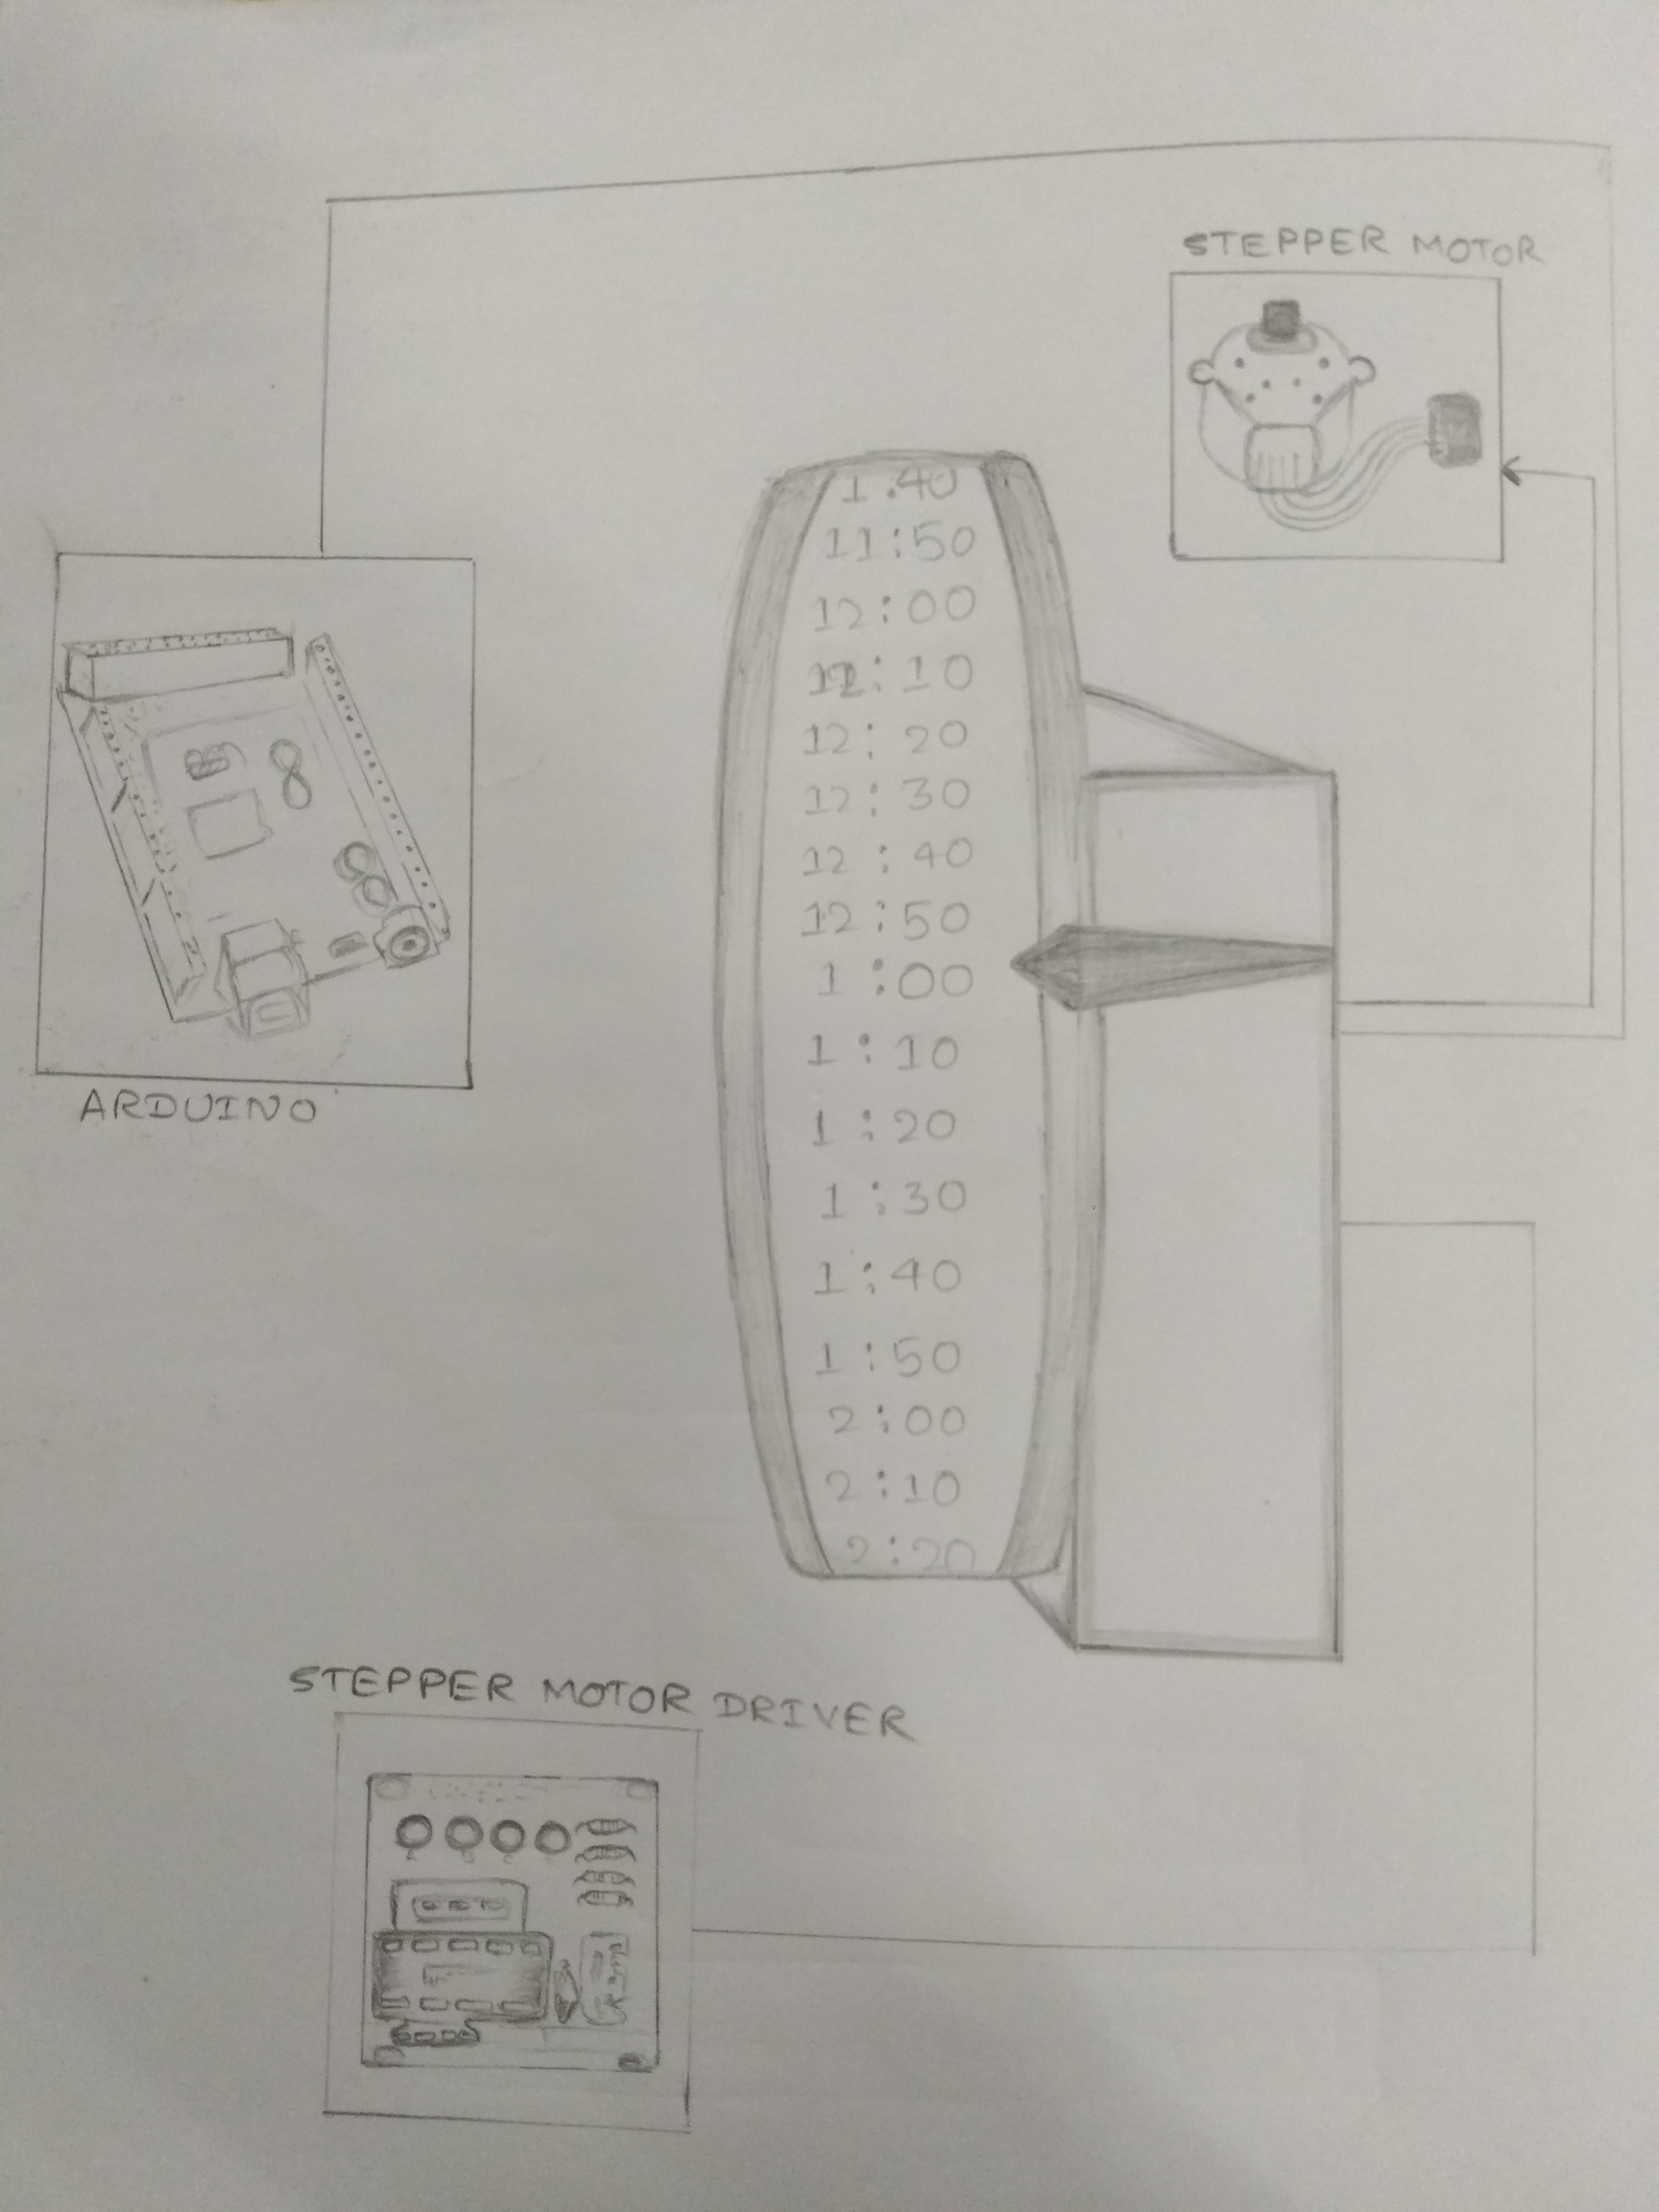 STEPPER MOTOR
1:40
11:50
12:00
12:10
12:20
12:30
12:40
12:50
1:00
1:10
1:20
1:30
1:40
1:50
2:00
2:10
2:20
ARDUINO
STEPPER MOTOR DRIVER